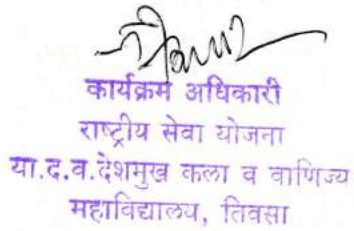 कार्यक्रम अधिकारी
राष्ट्रीय सेवा योजना
या.द.व.देशमुख कला व वाणिज्य
महाविद्यालय, तिवसा